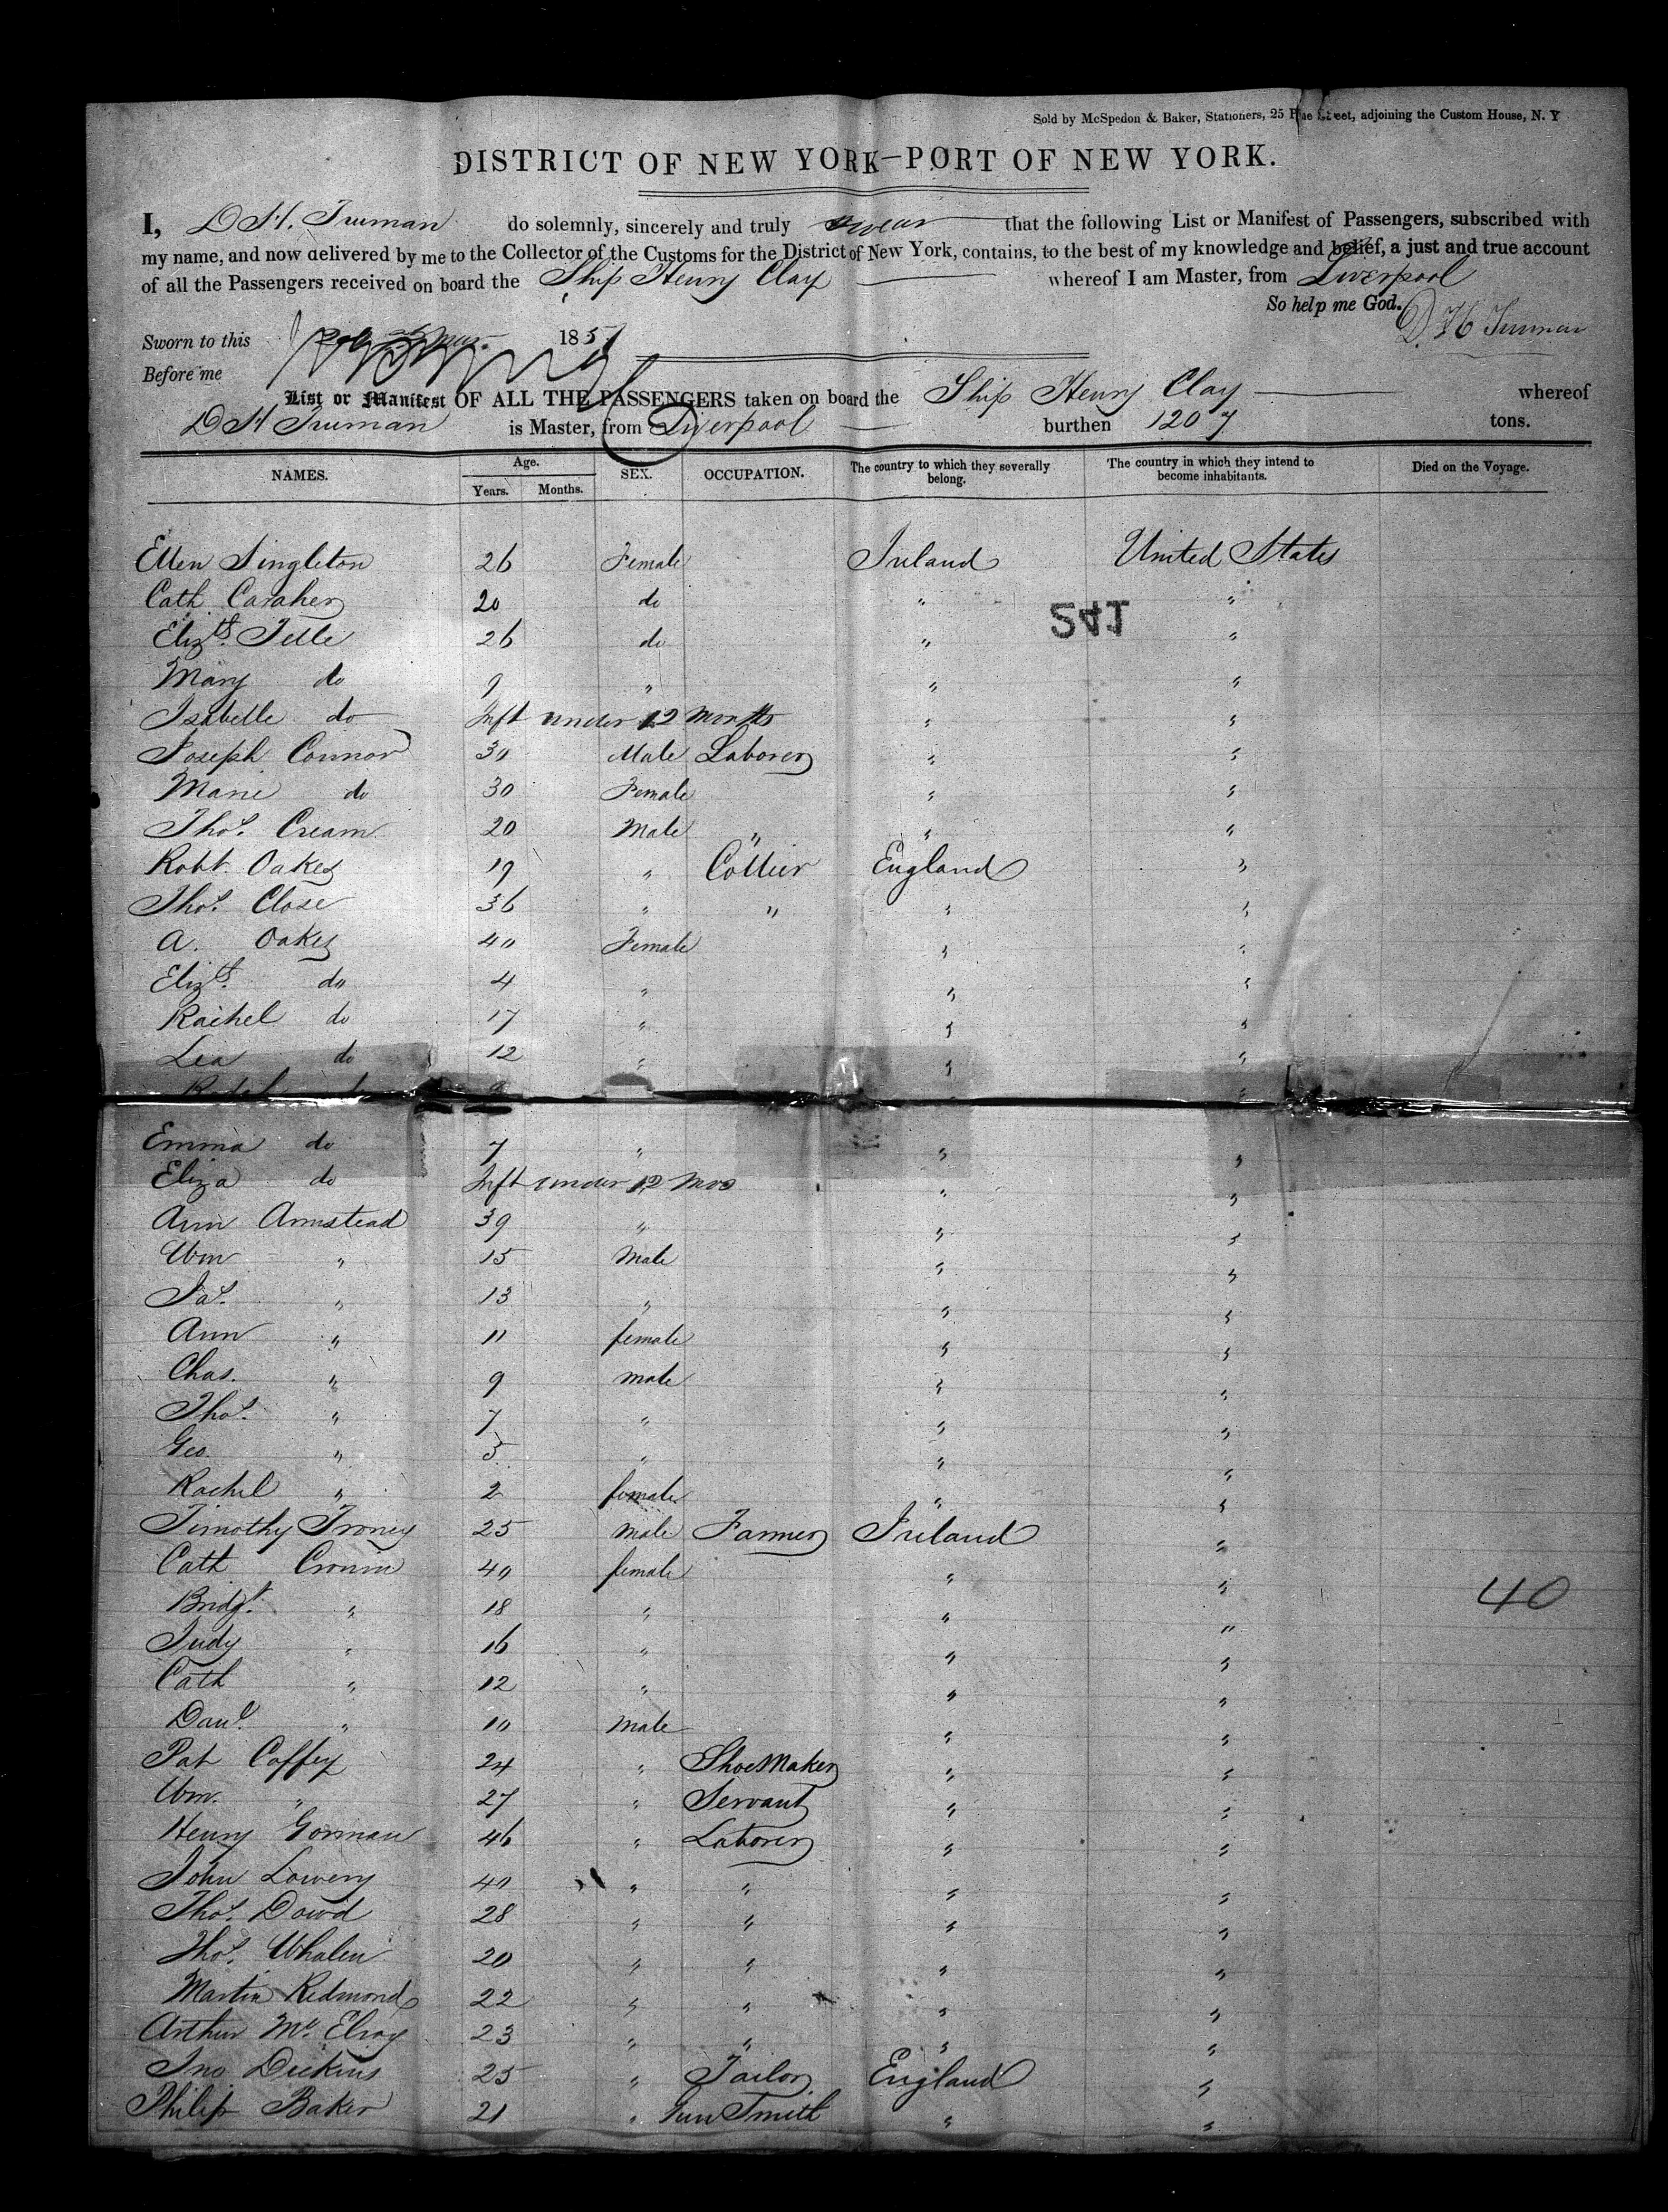 Sold by McSpedon & Baker, Stationers, 25 Pine Street, adjoining the Custom House, N. Y
DISTRICT OF NEW YORK—PORT OF NEW YORK.
I, D H. Truman do solemnly, sincerely and truly swear that the following List or Manifest of Passengers, subscribed with
my name, and now delivered by me to the Collector of the Customs for the District of New York, contains, to the best of my knowledge and belief, a just and true account
of all the Passengers received on board the Ship Henry Clay whereof I am Master, from Liverpool
So help me God. D. H Truman
Sworn to this 1851
Before me
List or Manifest OF ALL THE PASSENGERS taken on board the Ship Henry Clay whereof
D H Truman is Master, from Liverpool burthen 1207 tons.
NAMES. Age. Years. Months. SEX. OCCUPATION. The country to which they severally belong. The country in which they intend to become inhabitants. Died on the Voyage.
Ellen Singleton 26 Female Ireland United States
Cath Caraher 20 do " "
241
Elizth. Telle 26 do " "
Mary do 9 " " "
Isabelle do Inft under 12 Months " "
Joseph Connor 30 Male Laborer " "
Marie do 30 Female " "
Thos. Cream 20 Male " " "
Robt. Oakes 19 " Collier England "
Thos. Close 36 " " " "
A. Oakes 40 Female " "
Elizth. do 4 " " "
Rachel do 17 " " "
Lea do 12 " " "
do "
Emma do 7 " " "
Eliza do Inft under 12 Mos " "
Ann Armstead 39 " " "
Wm " 15 Male " "
Jas. " 13 " " "
Ann " 11 female " "
Chas. " 9 male " "
Thos. " 7 " " "
Geo. " 5 " " "
Rachel " 2 female " "
Timothy Troney 25 male Farmer Ireland "
Cath Cronin 40 female " "
40
Bridgt. " 18 " " "
Judy " 16 " " "
Cath " 12 " " "
Danl. " 10 Male " "
Pat Coffey 24 " ShoeMaker " "
Wm. " 27 " Servant " "
Henry Gorman 46 " Laborer " "
John Lowery 40 " " " "
Thos. Dowd 28 " " " "
Thos. Whalen 20 " " " "
Martin Redmond 22 " " " "
Arthur Mc. Elroy 23 " " " "
Jno Dickins 25 " Tailor England "
Philip Baker 21 " Gun Smith " "